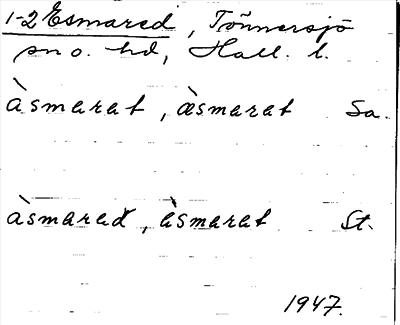 1-2 Esmared, Tönnersjö
sn o. hd, Hall. l.
àsmarat, æ̀smarat Sa.
àsmarad, àsmarat St.
1947.